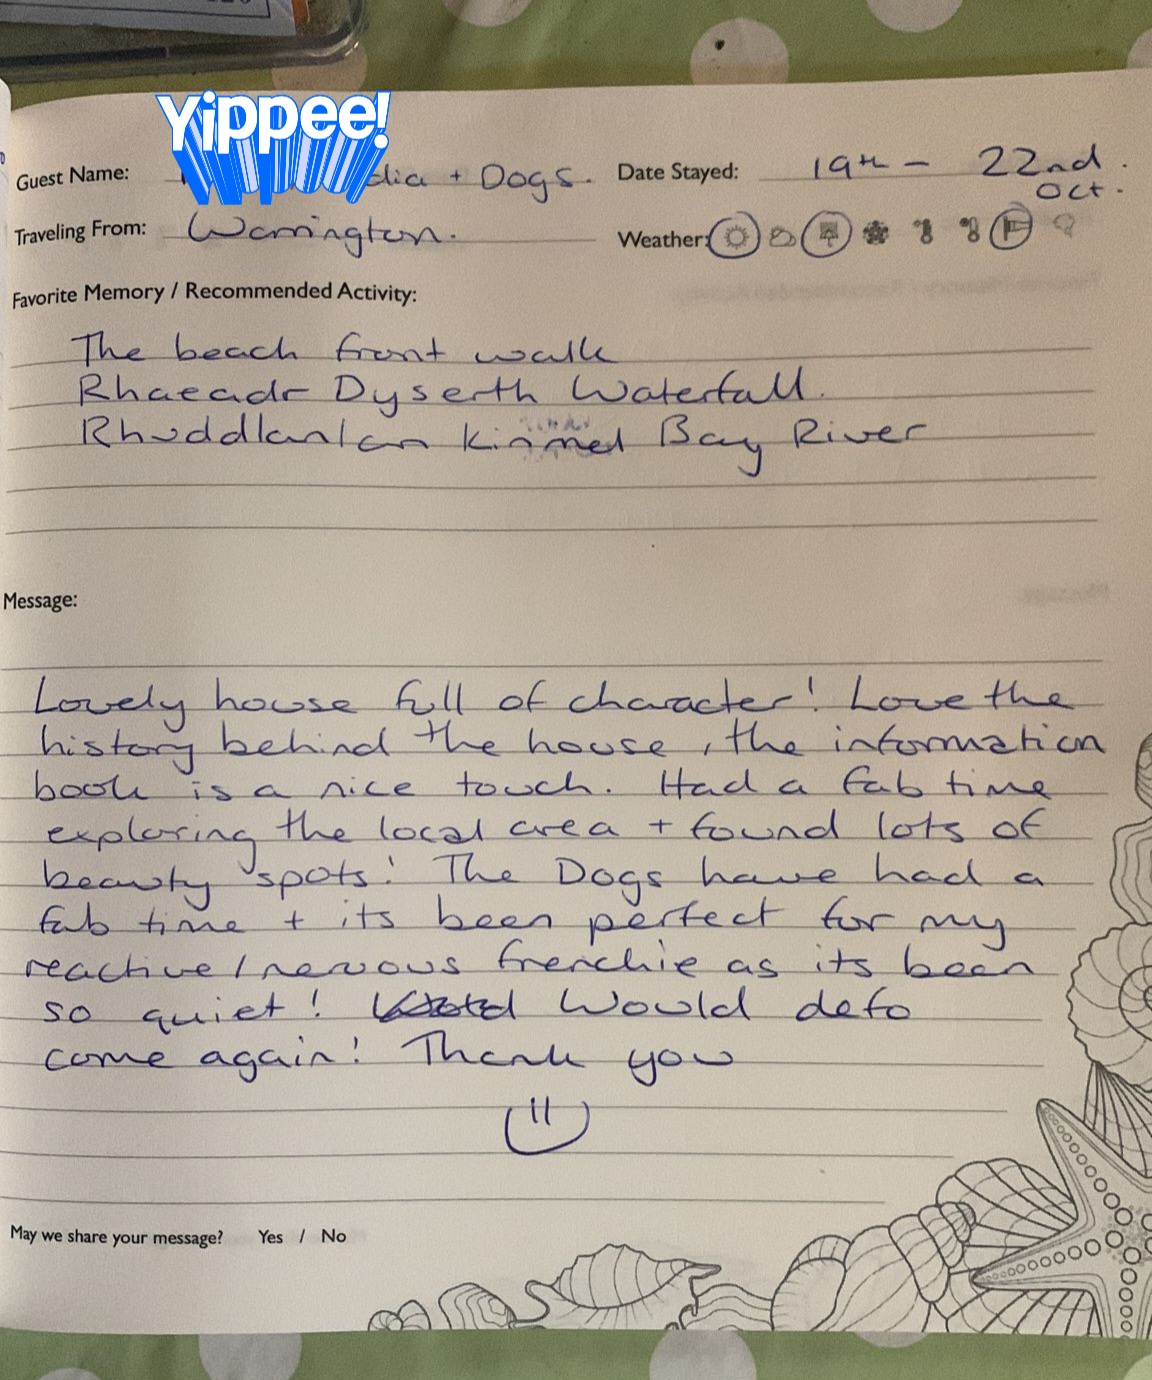 Yippee!
Guest Name: dia + Dogs. Date Stayed: 19th - 22nd Oct.
Traveling From: Warrington. Weather:
Favorite Memory / Recommended Activity:
The beach front walk
Rhaeadr Dyserth Waterfall.
Rhuddlan/an Kinmel Bay River
Message:
Lovely house full of character! Love the
history behind the house, the information
book is a nice touch. Had a fab time
exploring the local area + found lots of
beauty spots! The Dogs have had a
fab time + its been perfect for my
reactive/nervous frenchie as its been
so quiet! Would defo
come again! Thank you
May we share your message? Yes / No